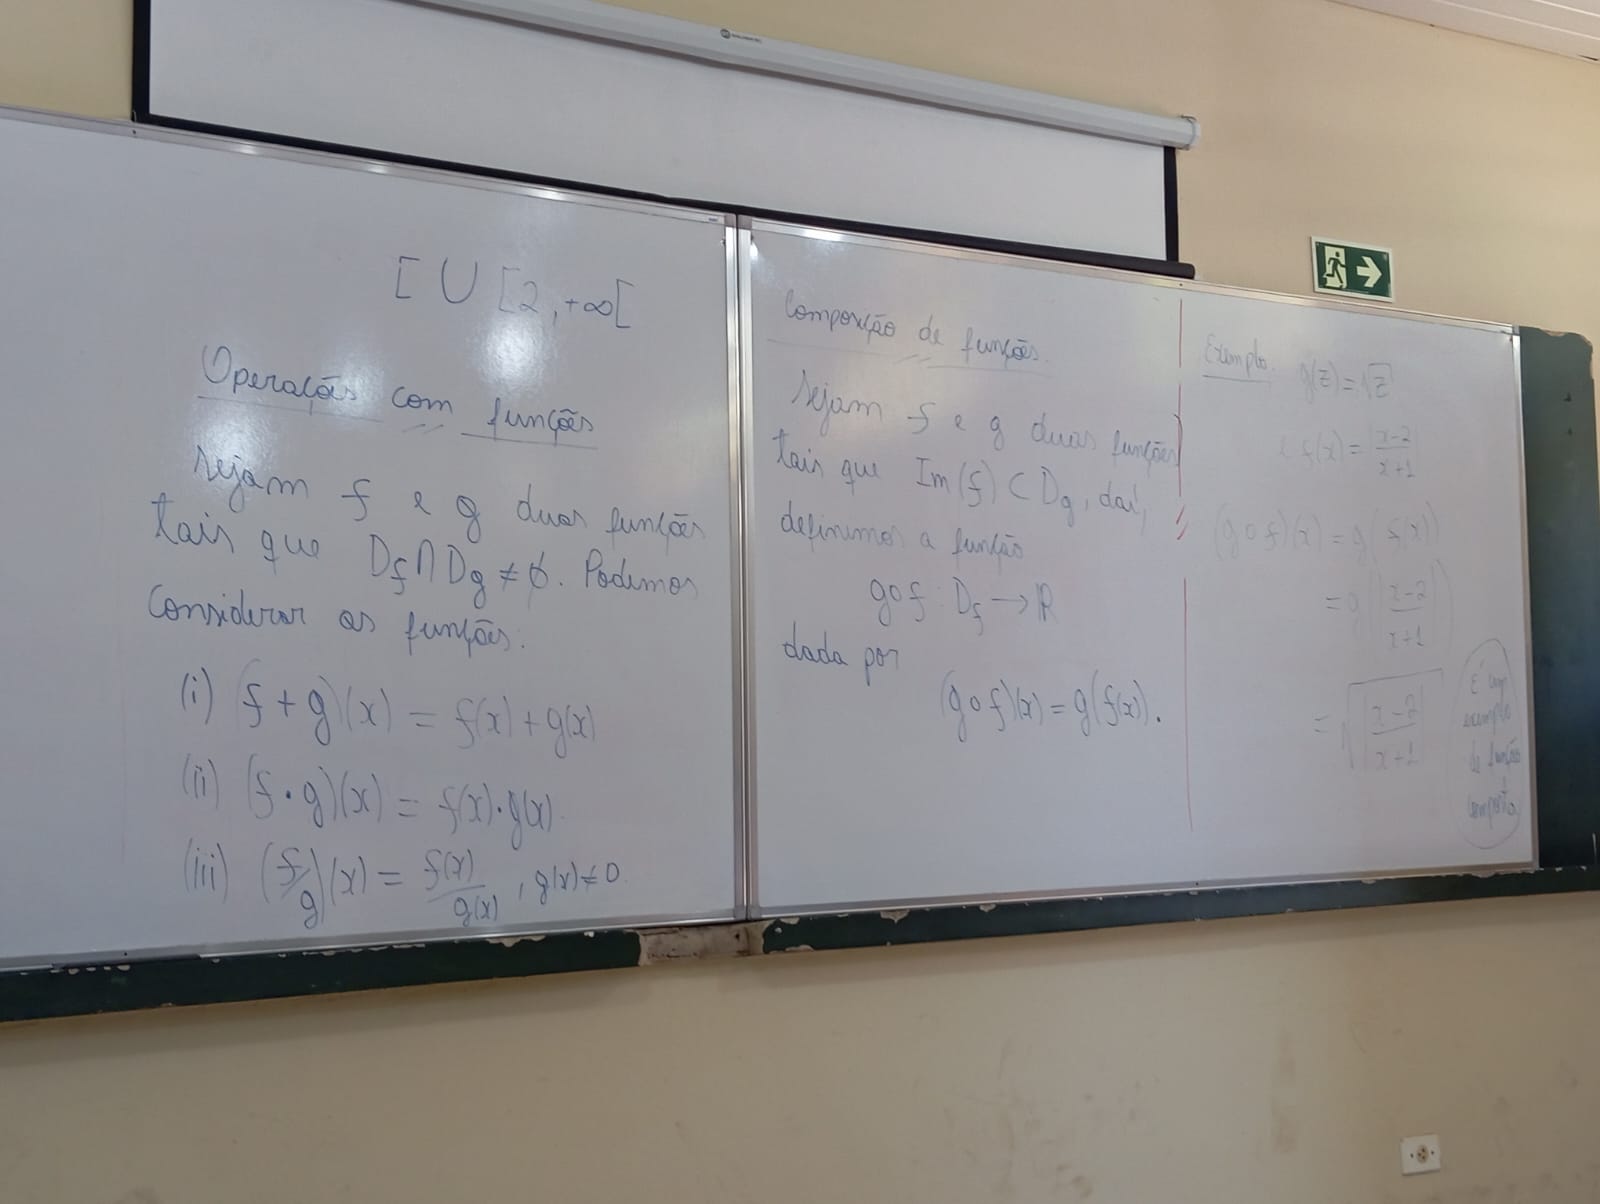 [ U [2, +∞[
Operações com funções
Sejam f e g duas funções
tais que Df ∩ Dg ≠ ∅. Podemos
considerar as funções:
(i) (f + g)(x) = f(x) + g(x)
(ii) (f · g)(x) = f(x) · g(x).
(iii) (f/g)(x) = f(x)/g(x), g(x) ≠ 0.
Composição de funções.
Sejam f e g duas funções
tais que Im(f) ⊂ Dg, daí,
definimos a função
g∘f: Df → ℝ
dada por
(g∘f)(x) = g(f(x)).
Exemplo. g(z) = √z
e f(x) = |x-2/x+1|
(g∘f)(x) = g(f(x))
= g(|x-2/x+1|)
= √|x-2/x+1|
É um
exemplo
de função
composta